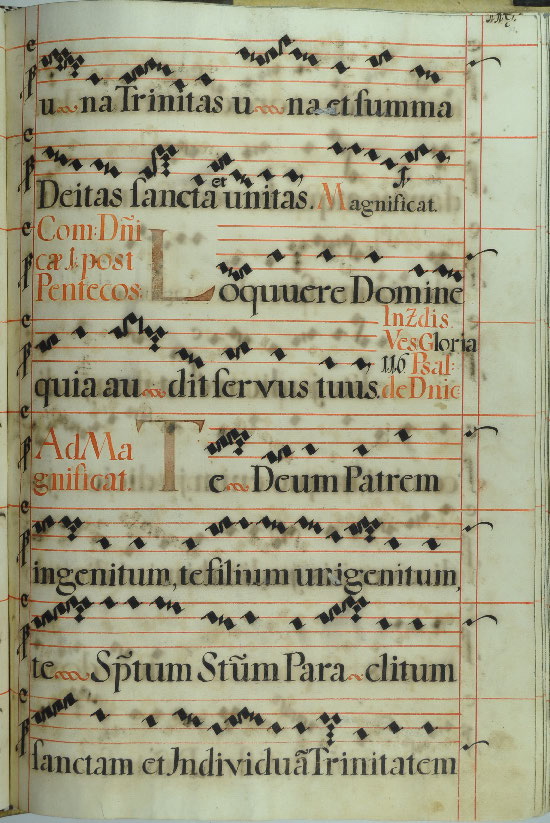 u na Trinitas u na et summa
Deitas sancta et unitas. Magnificat.
Com: Dñi
cæ 1. post
Pentecos:
Loquuere Domine
quia au dit servus tuus.
In 2. dis
Ves Gloria
116 Psal:
de Dnic
Ad Ma
gnificat.
Te Deum Patrem
ingenitum, te filium unigenitum,
te Sp̃tum Stũm Para clitum
sanctam et Individuã Trinitatem